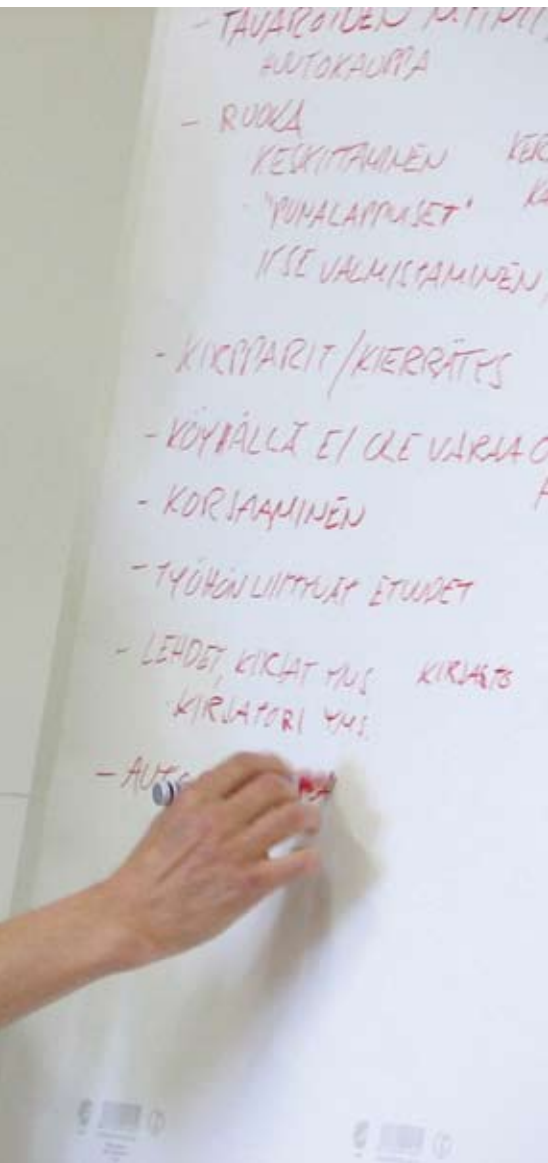 - TAVAROIDEN
HUUTOKAUPPA
- RUOKA
KESKITTÄMINEN
"PUNALAPPUISET"
ITSE VALMISTAMINEN,
- KIRPPARIT/KIERRÄTYS
- KÖYHÄLLÄ EI OLE VARAA O
- KORJAAMINEN
- TYÖHÖN LIITTYVÄT ETUUDET
- LEHDET, KIRJAT YMS KIRJASTO
KIRJATORI YMS.